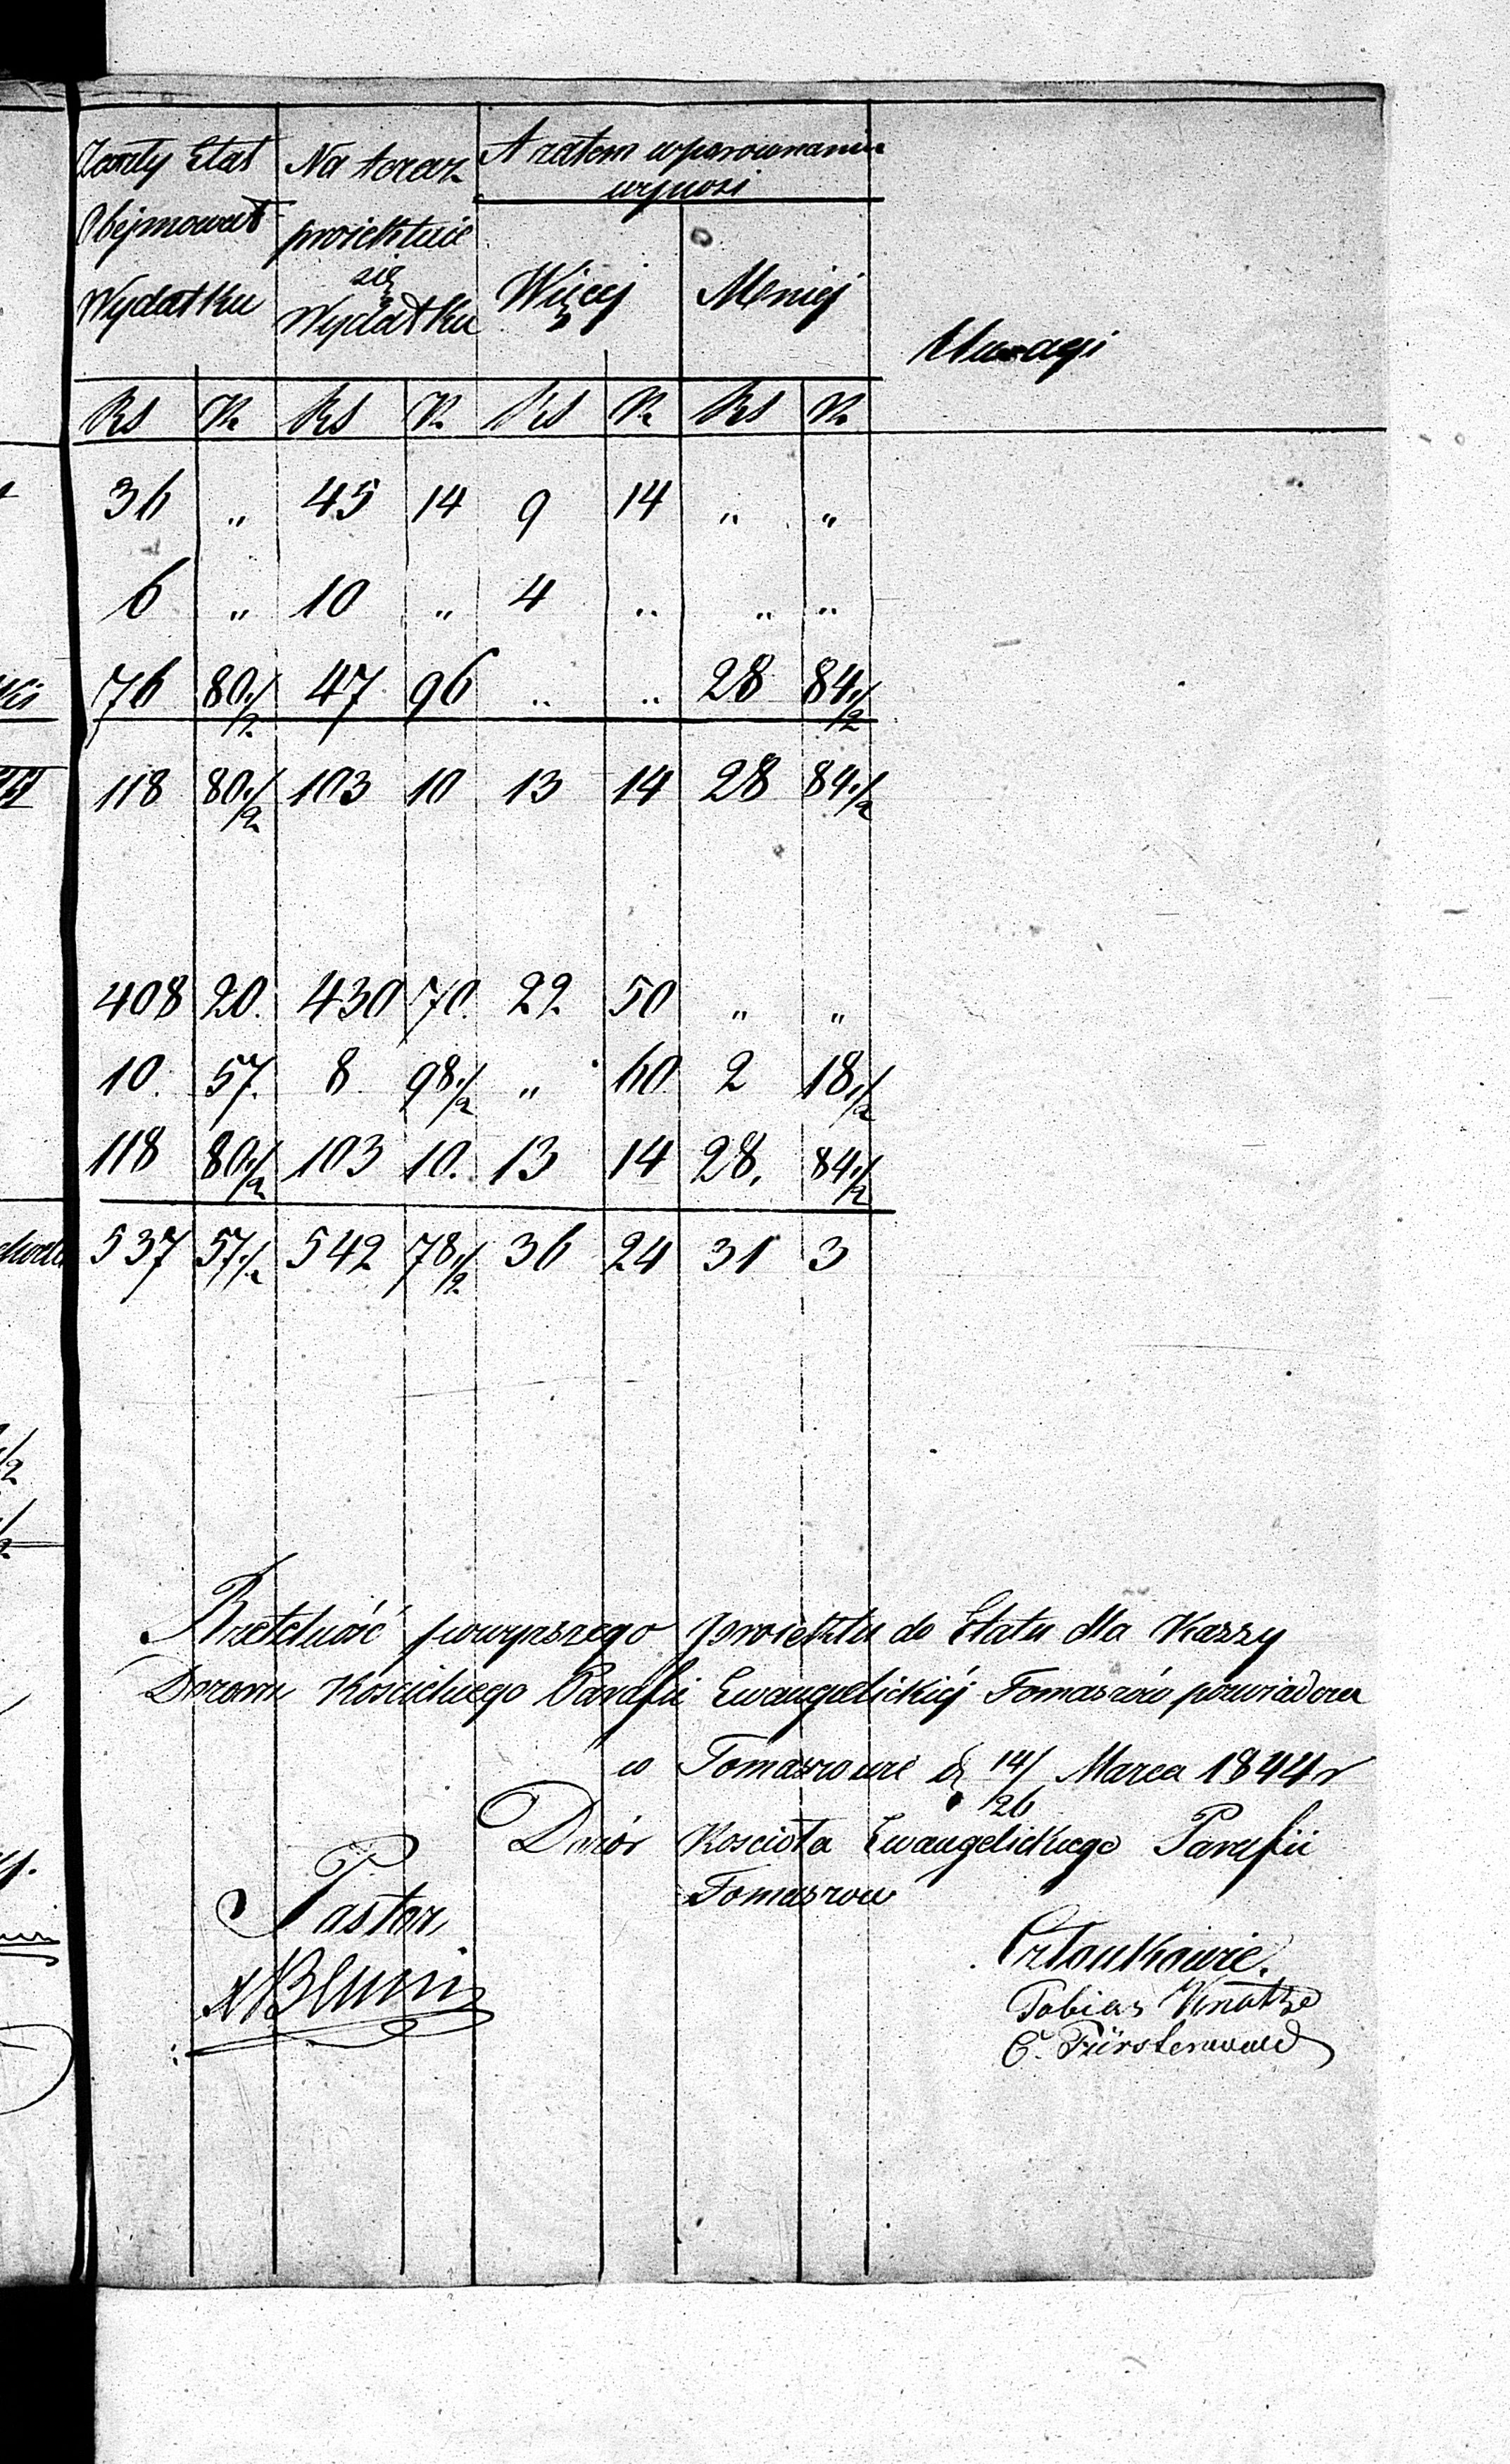 Zeszły Etat
Obejmował
Wydatku
Na teraz
proiektuie
się
Wydatku
A zatem w porównaniu
wynosi
Więcej
Mniej
Uwagi
Rs K. Rs K. Rs K. Rs K.
36 " 45 14 9 14 " "
6 " 10 " 4 " " "
76 80 1/2 47 96 " " 28 84 1/2
118 80 1/2 103 10 13 14 28 84 1/2
408 20. 430 70. 22 50 " "
10. 57. 8 98 1/2 " 60 2 18 1/2
118 80 1/2 103 10. 13 14 28. 84 1/2
537 57 1/2 542 78 1/2 36 24 31 3
Rzetelność powyższego proiektu do Etatu dla Kassy
Dozoru Kościelnego Parafii Ewangelickiéj Tomaszów poswiadcza
w Tomaszowie d. 14/26 Marca 1844 r
Dozór Kościoła Ewangelickiego Parafii
Tomaszow
Pastor
Blum
Członkowie.
Tobias Knotze
C. Fürstenwald